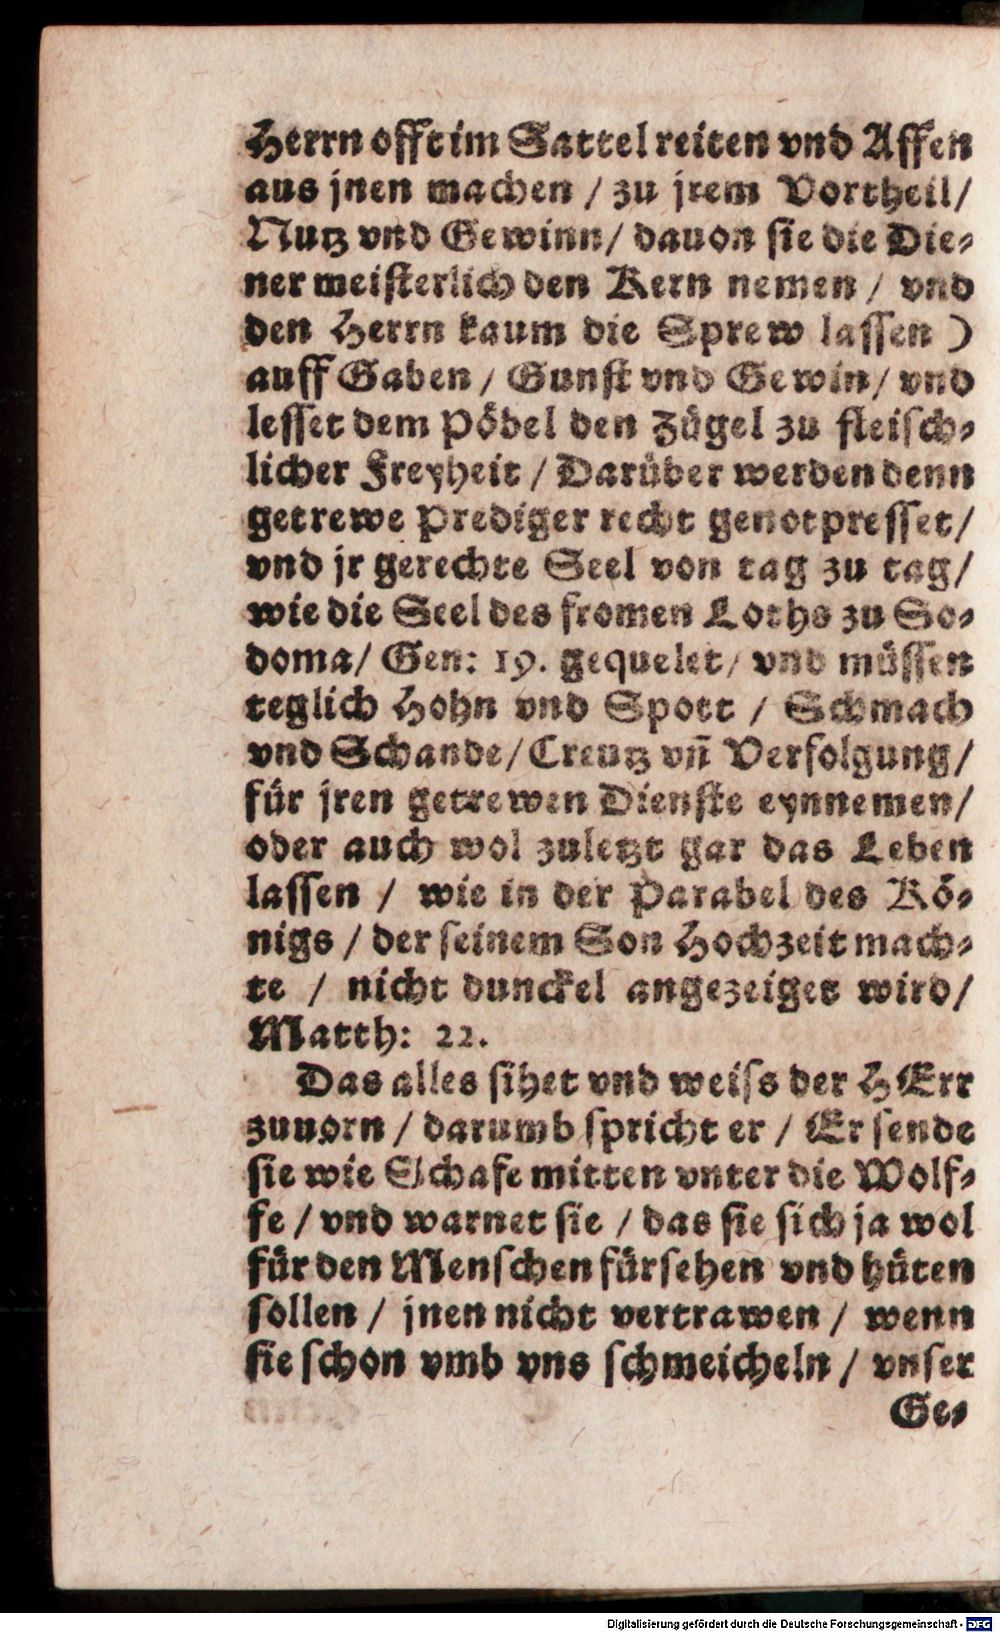 Herrn offt im Sattel reiten vnd Affen
aus jnen machen / zu jrem Vortheil /
Nutz vnd Gewinn / dauon sie die Die⸗
ner meisterlich den Kern nemen / vnd
den Herrn kaum die Sprew lassen )
auff Gaben / Gunst vnd Gewin / vnd
lesset dem Pöbel den Zügel zu fleisch⸗
licher Freyheit / Darüber werden denn
getrewe Prediger recht genotpresset /
vnd jr gerechte Seel von tag zu tag /
wie die Seel des fromen Loths zu So⸗
doma / Gen: 19. gequelet / vnd müssen
teglich Hohn vnd Spott / Schmach
vnd Schande / Creutz vñ Verfolgung /
für jren getrewen Dienste eynnemen /
oder auch wol zuletzt gar das Leben
lassen / wie in der Parabel des Kö⸗
nigs / der seinem Son Hochzeit mach⸗
te / nicht dunckel angezeiget wird /
Matth: 22.
Das alles sihet vnd weiss der HErr
zuuorn / darumb spricht er / Er sende
sie wie Schafe mitten vnter die Wolf⸗
fe / vnd warnet sie / das sie sich ja wol
für den Menschen fürsehen vnd hüten
sollen / jnen nicht vertrawen / wenn
sie schon vmb vns schmeicheln / vnser
Ge⸗
Digitalisierung gefördert durch die Deutsche Forschungsgemeinschaft - DFG